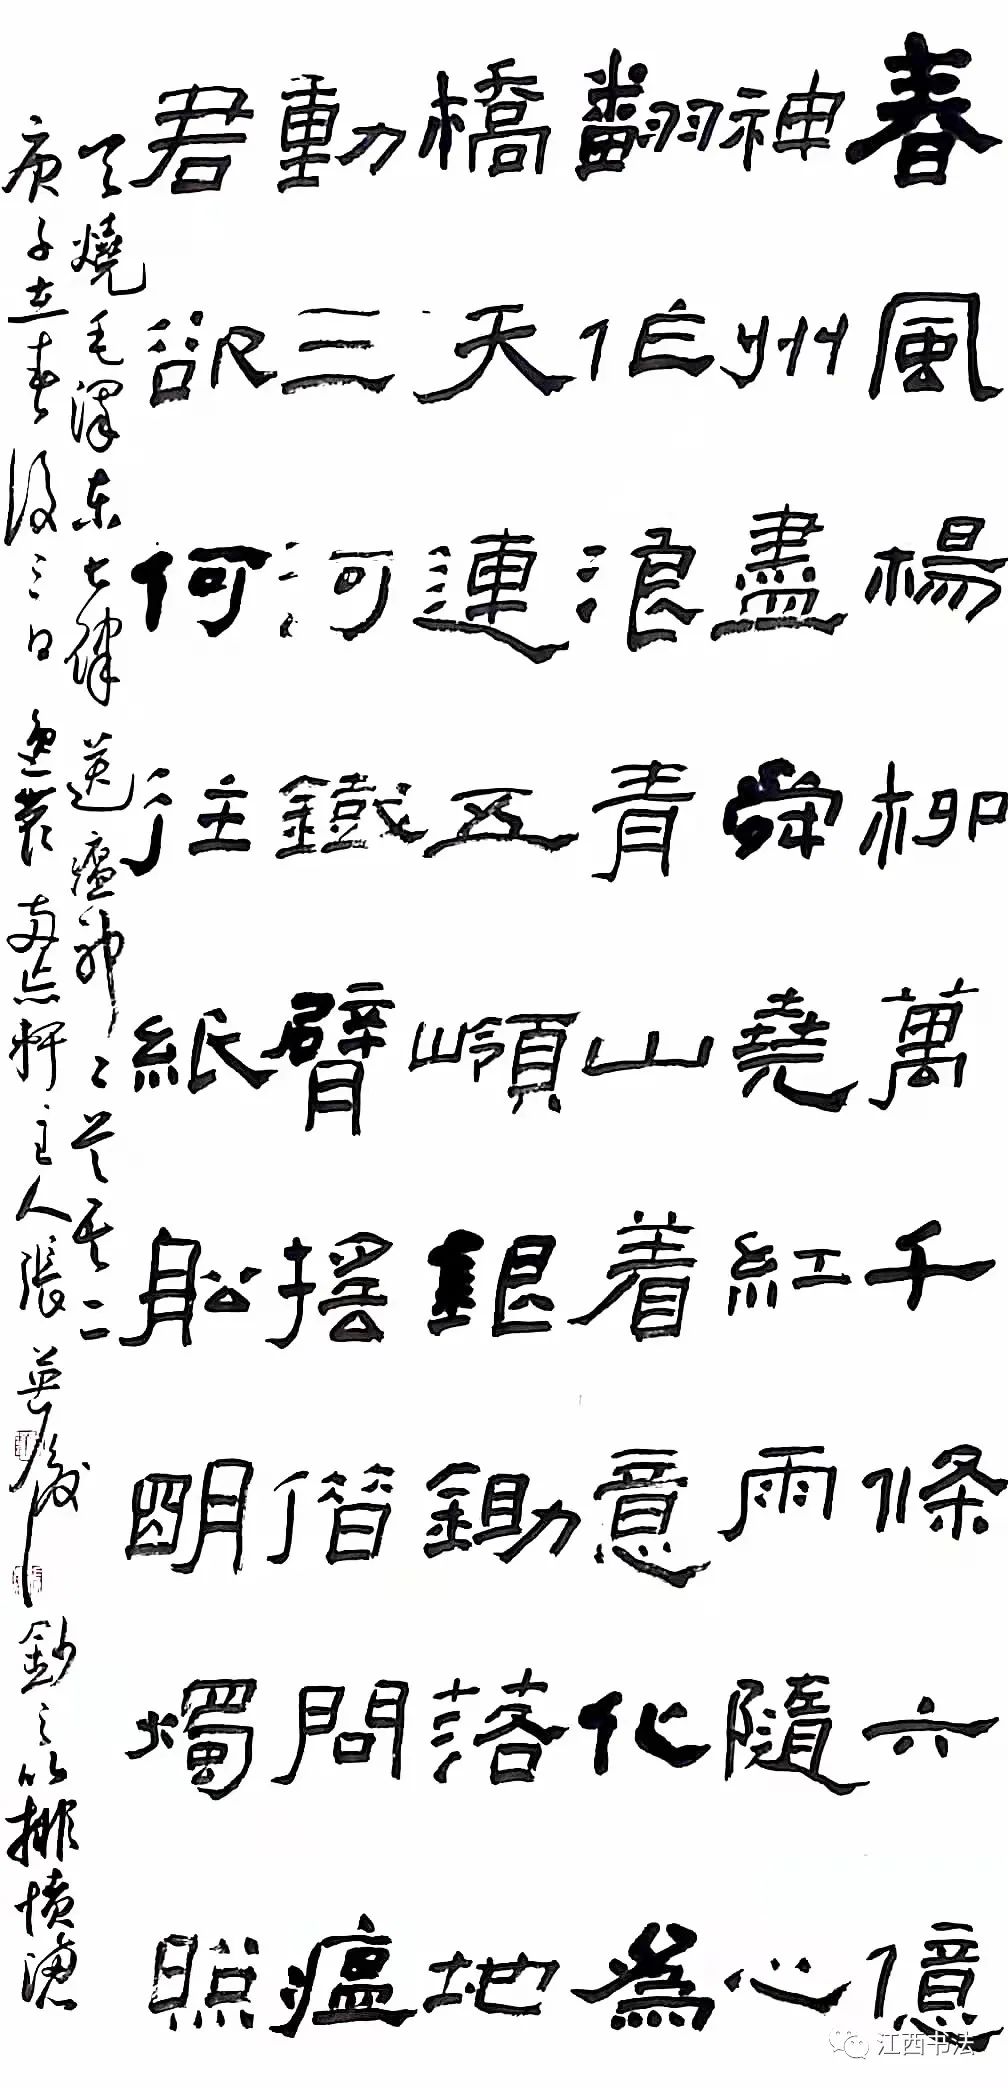 春風楊柳萬千條六億
神州盡舜堯紅雨隨心
翻作浪青山着意化為
橋天連五嶺銀鋤落地
動三河鐵臂搖借問瘟
君欲何往紙船明燭照
天燒毛澤東七律送瘟神二首其二
庚子立春後三日軒主人張英鈔之以排憤
江西书法